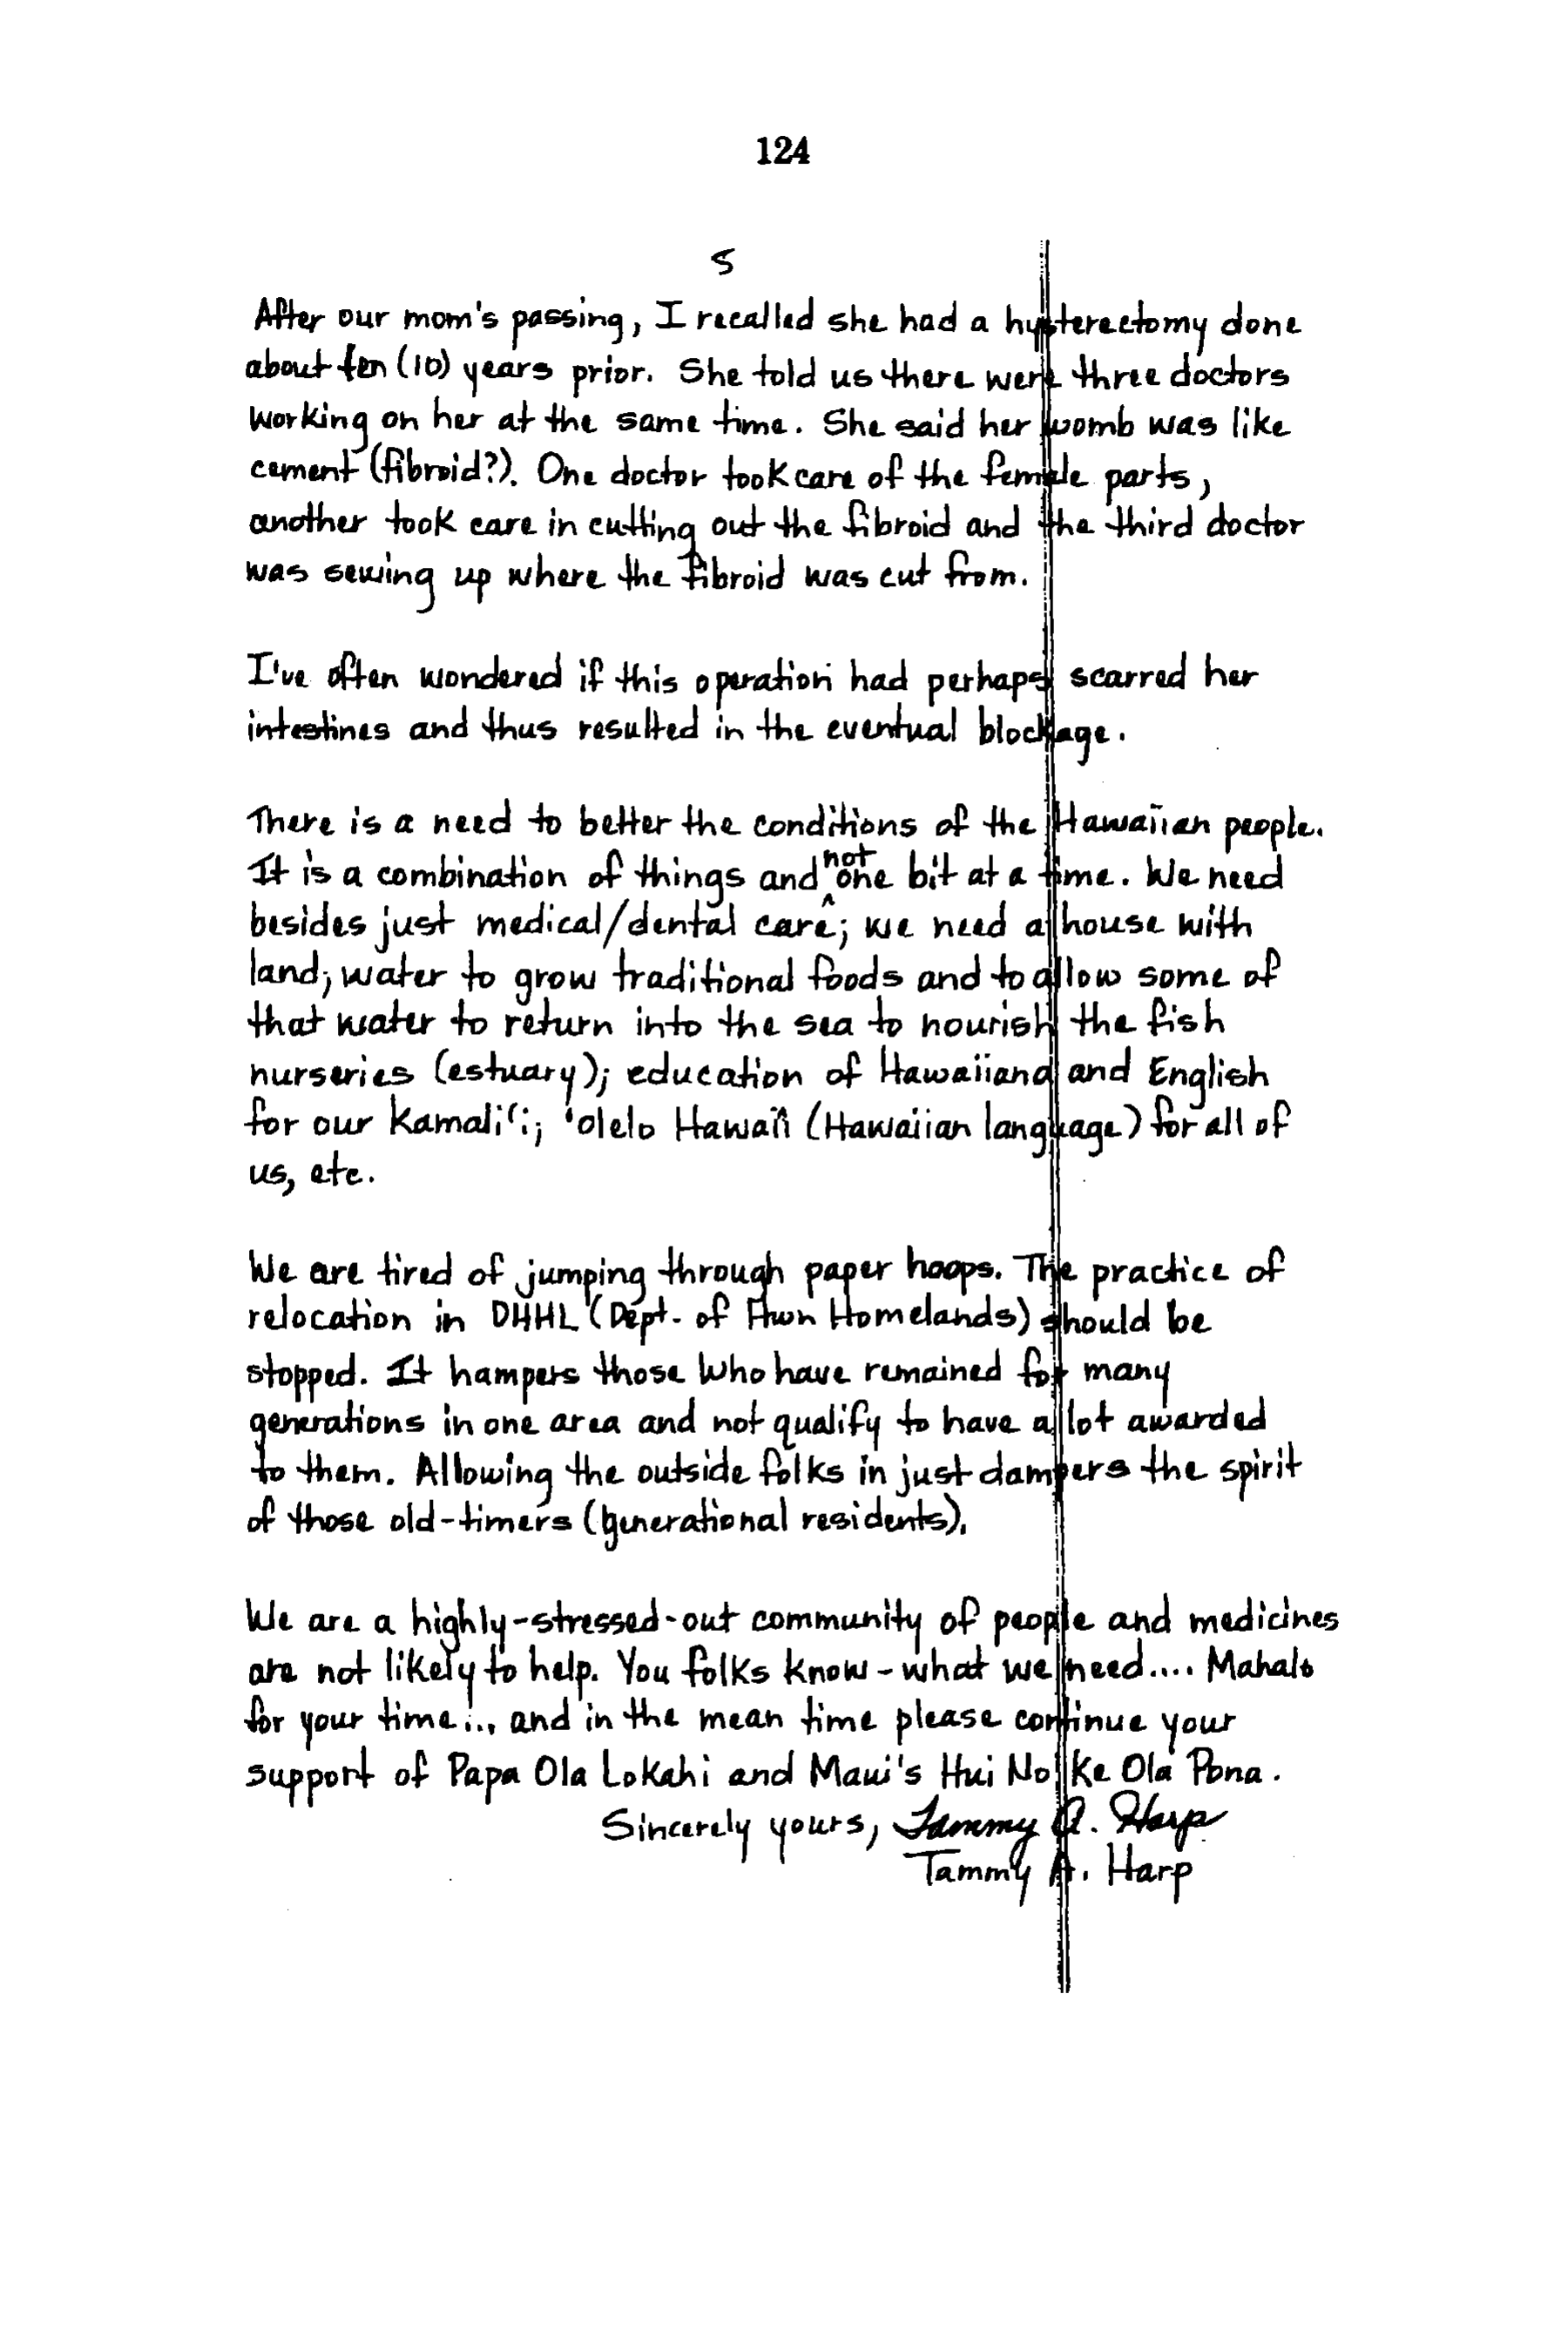 124
5
After our mom's passing, I recalled she had a hysterectomy done
about ten (10) years prior. She told us there were three doctors
working on her at the same time. She said her womb was like
cement (fibroid?). One doctor took care of the female parts,
another took care in cutting out the fibroid and the third doctor
was sewing up where the fibroid was cut from.
I've often wondered if this operation had perhaps scarred her
intestines and thus resulted in the eventual blockage.
There is a need to better the conditions of the Hawaiian people.
It is a combination of things and not one bit at a time. We need
besides just medical/dental care; we need a house with
land; water to grow traditional foods and to allow some of
that water to return into the sea to nourish the fish
nurseries (estuary); education of Hawaiiana and English
for our Kamali'i; 'olelo Hawai'i (Hawaiian language) for all of
us, etc.
We are tired of jumping through paper hoops. The practice of
relocation in DHHL (Dept. of Hwn Homelands) should be
stopped. It hampers those who have remained for many
generations in one area and not qualify to have a lot awarded
to them. Allowing the outside folks in just dampers the spirit
of those old-timers (generational residents).
We are a highly-stressed-out community of people and medicines
are not likely to help. You folks know - what we need.... Mahalo
for your time... and in the mean time please continue your
support of Papa Ola Lokahi and Maui's Hui No Ke Ola Pono.
Sincerely yours, Tammy A. Harp
Tammy A. Harp